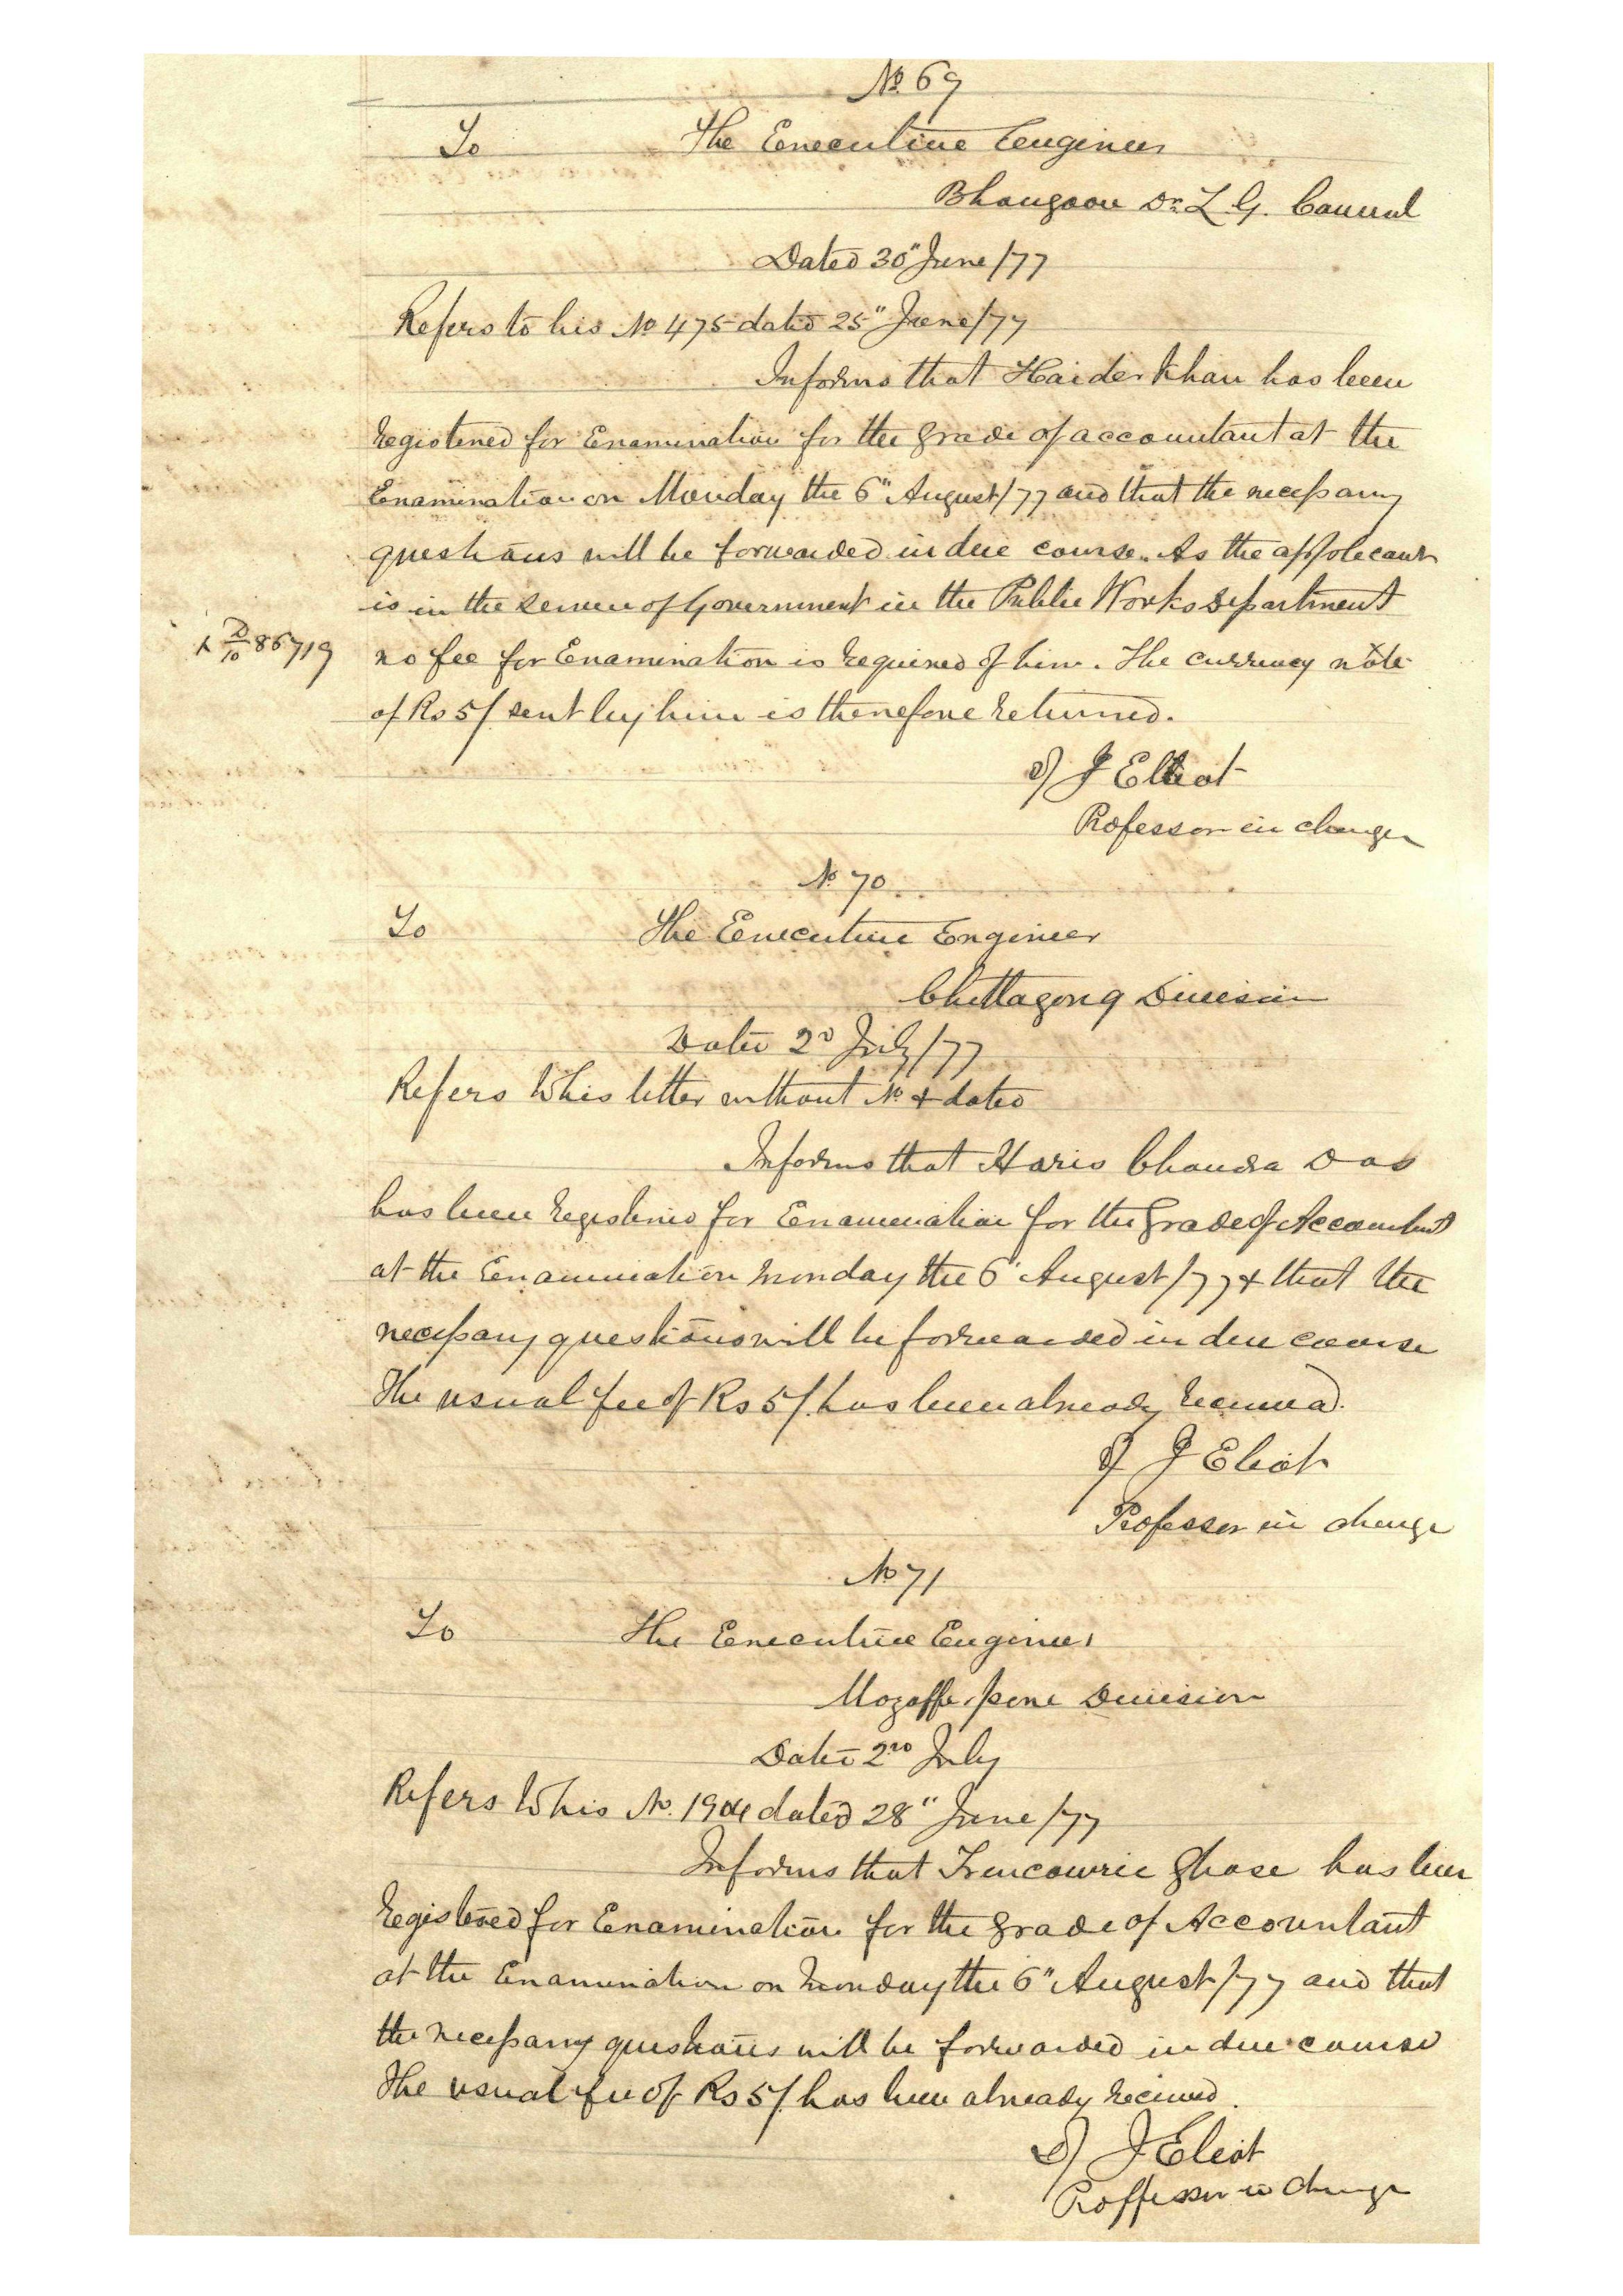 No. 69
To The Executive Engineer
Bhangaon Dn L. G. Cannal
Dated 30" June /77
Refers to his No 475 dated 25" June /77
Informs that Haider Khan has been
registered for Examination for the grade of accountant at the
Examination on Monday the 6" August /77 and that the necessary
questions will be forwarded in due course. As the applicant
is in the service of Government in the Public Works Department
x D/10 86719
no fee for Examination is required of him. The currency x note
of Rs 5/ sent by him is therefore returned.
Sd/ J Elliot
Professor in charge
No 70
To The Executive Engineer
Chittagong Division
Dated 2d July /77
Refers to his letter without No & dated
Informs that Haris Chandra Das
has been registered for Examination for the grade of Accountant
at the Examination monday the 6" August /77 & that the
necessary questions will be forwarded in due course
The usual fee of Rs 5/. has been already received.
Sd/ J Eliot
Professor in charge
No 71
To The Executive Engineer
Mozafferpore Division
Dated 2nd July
Refers to his No. dated 28" June /77
Informs that Trencowrie Ghose has been
registered for Examination for the grade of Accountant
at the Examination on monday the 6" August /77 and that
the necessary questions will be forwarded in due course
The usual fee of Rs 5/. has been already received.
Sd/ J Eliot
Proffessor in charge